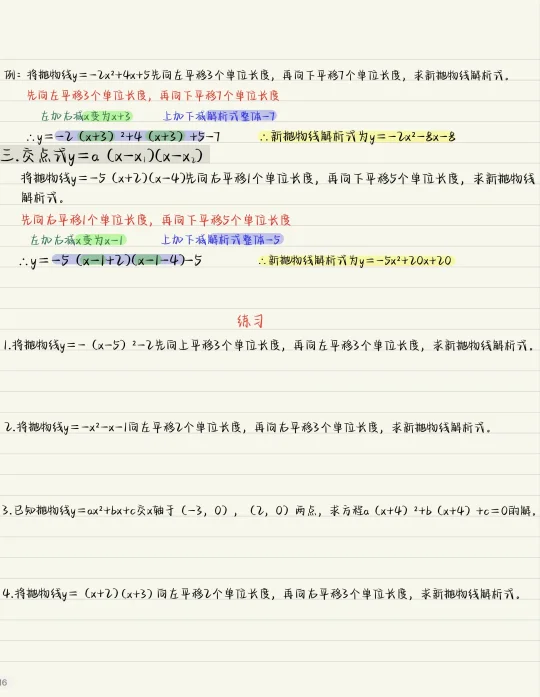 例：将抛物线y=-2x²+4x+5先向左平移3个单位长度，再向下平移7个单位长度，求新抛物线解析式。
先向左平移3个单位长度，再向下平移7个单位长度
左加右减x变为x+3 上加下减解析式整体-7
∴y=-2（x+3）²+4（x+3）+5-7 ∴新抛物线解析式为y=-2x²-8x-8
三.交点式y=a（x-x₁)(x-x₂)
将抛物线y=-5（x+2)(x-4)先向右平移1个单位长度，再向下平移5个单位长度，求新抛物线
解析式。
先向右平移1个单位长度，再向下平移5个单位长度
左加右减x变为x-1 上加下减解析式整体-5
∴y=-5（x-1+2)(x-1-4)-5 ∴新抛物线解析式为y=-5x²+20x+20
练习
1.将抛物线y=-（x-5）²-2先向上平移3个单位长度，再向左平移3个单位长度，求新抛物线解析式。
2.将抛物线y=-x²-x-1向左平移2个单位长度，再向右平移3个单位长度，求新抛物线解析式。
3.已知抛物线y=ax²+bx+c交x轴于（-3，0），（2，0）两点，求方程a（x+4）²+b（x+4）+c=0的解。
4.将抛物线y=（x+2)(x+3）向左平移2个单位长度，再向右平移3个单位长度，求新抛物线解析式。
16